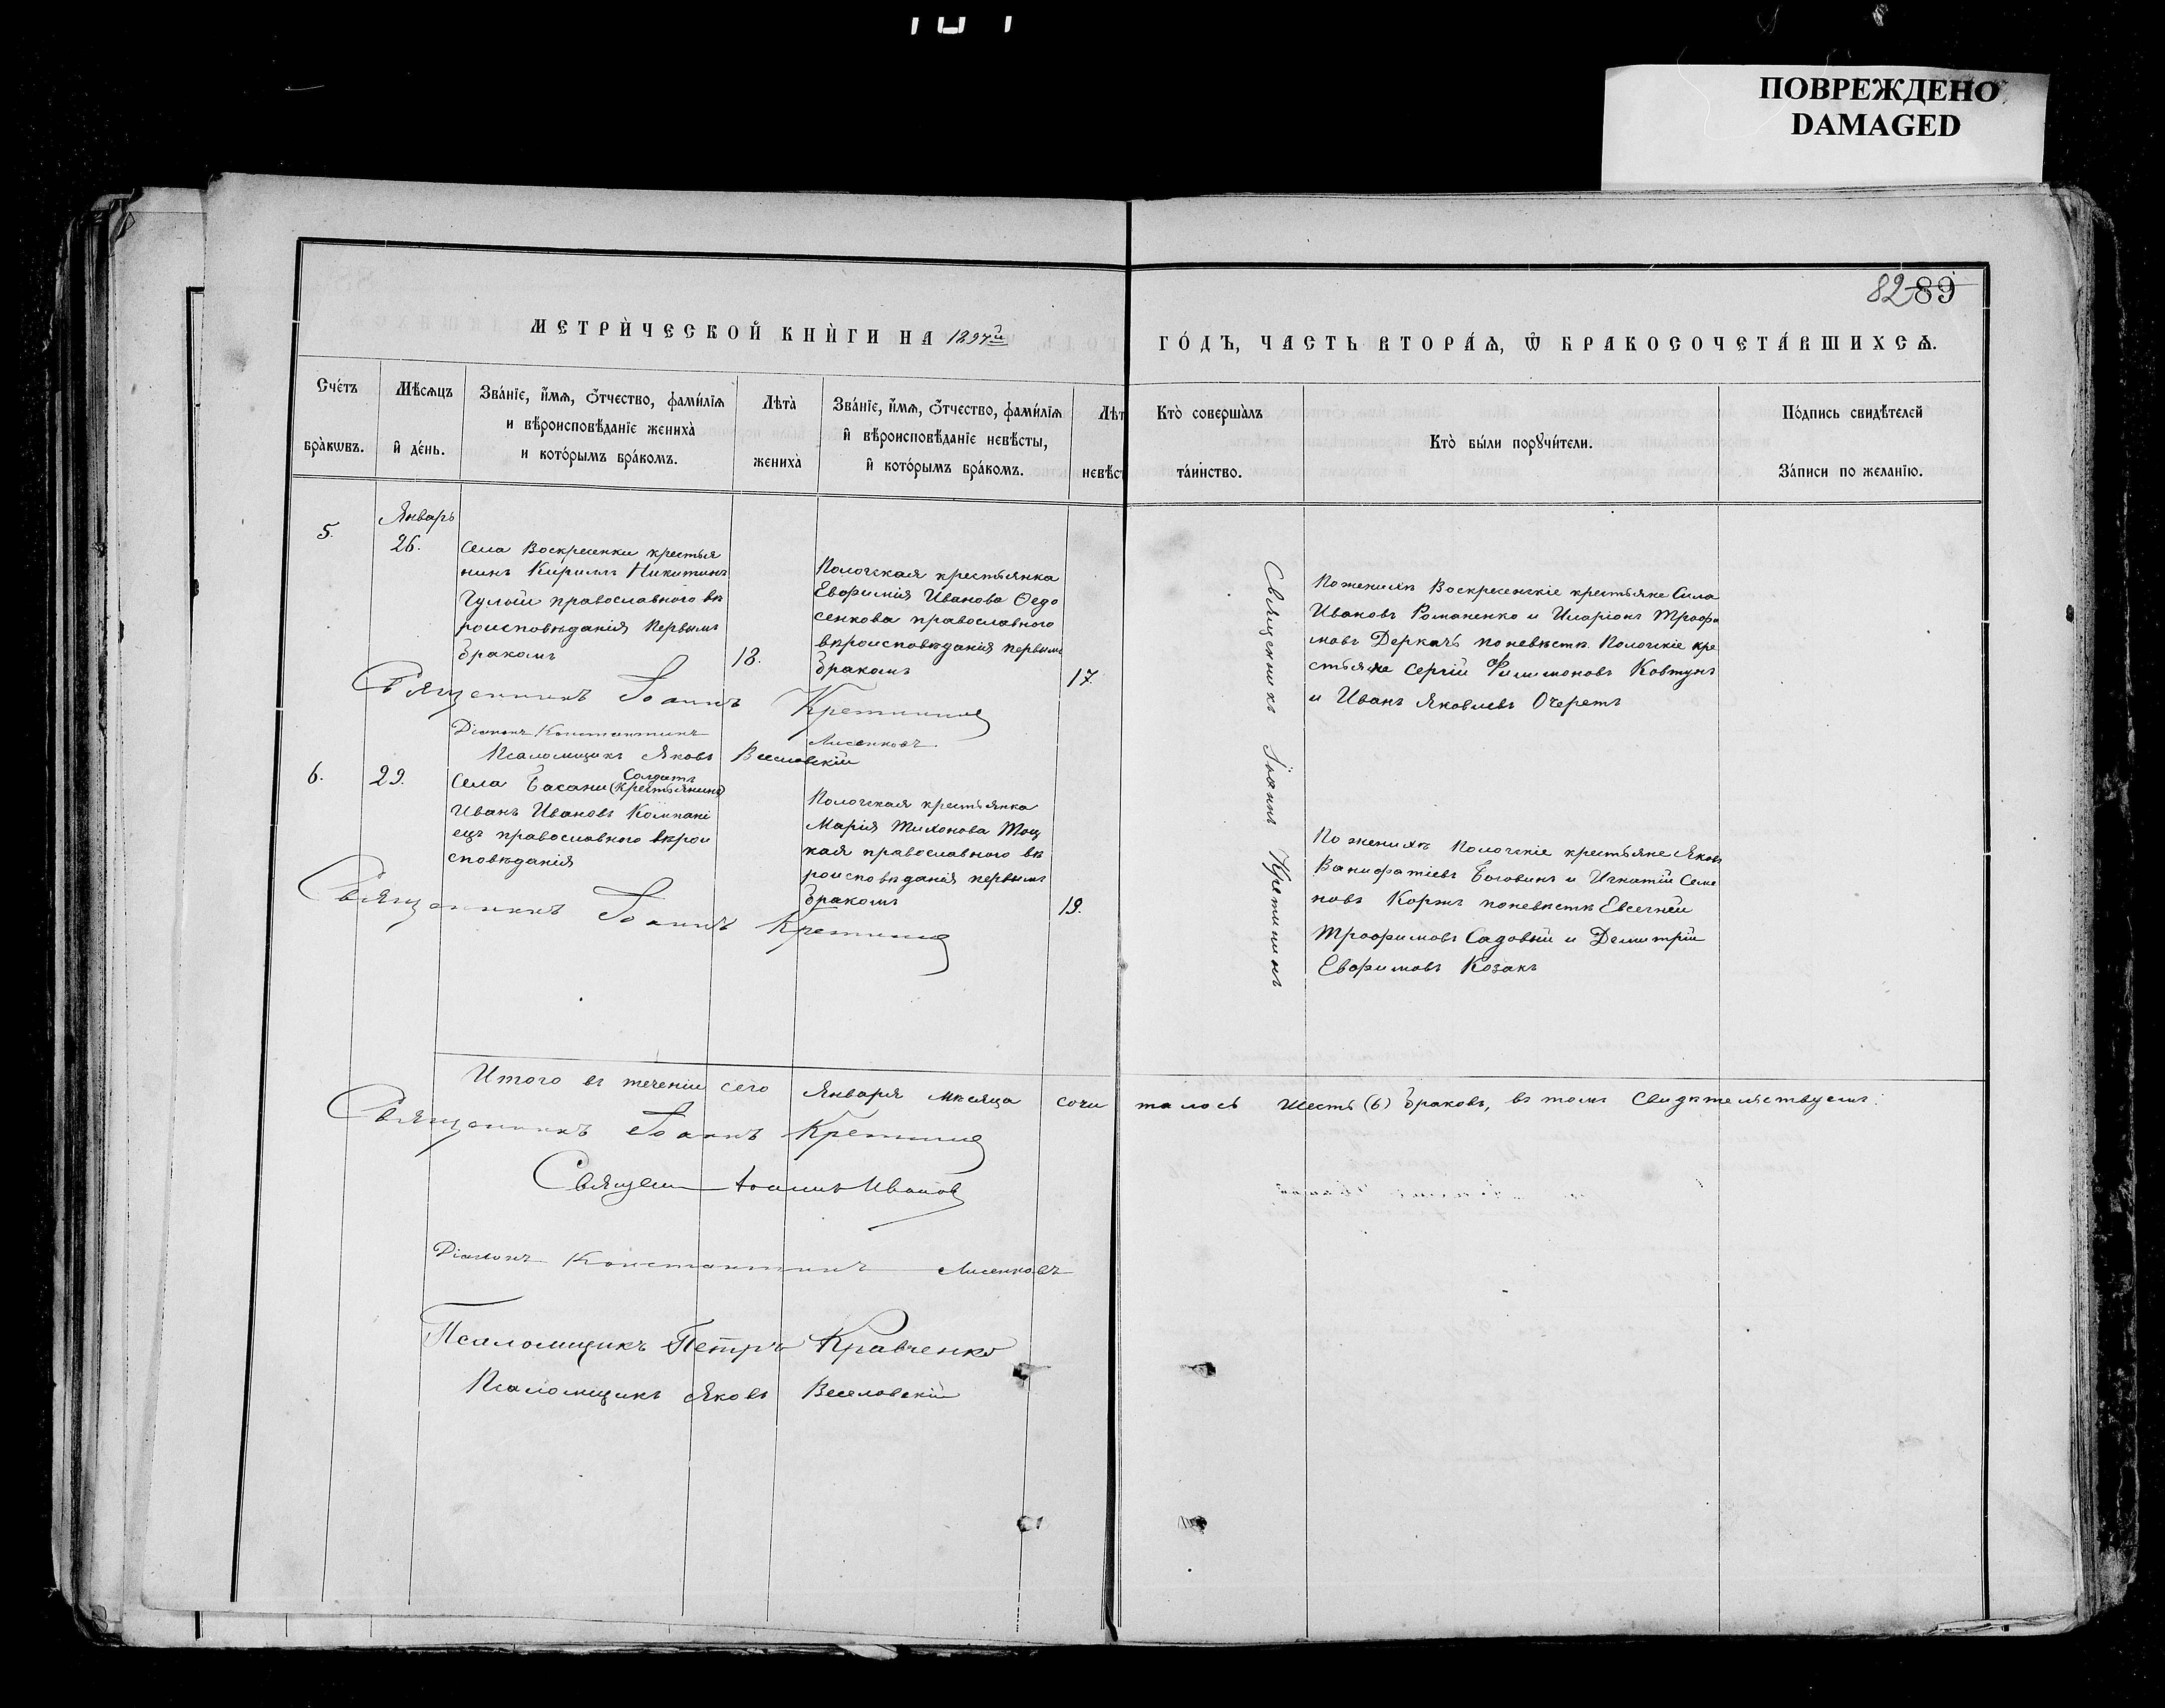 ПОВРЕЖДЕНО
DAMAGED
82 89
МЕТРИ́ЧЕСКОЙ КНИ́ГИ НА 1897й ГО́ДЪ, ЧАСТЬ ВТОРА́Я, Ѡ БРАКОСОЧЕТА́ВШИХСѦ.
Сче́тъ
бра̀кѡвъ.
Мѣ́сѧцъ
й де́нь.
Зва́нїе, и҆́мѧ, ѻ҆́тчество, фами́лїѧ
и вѣроисповѣ́данїе жениха̀
и кото́рымъ бра́комъ.
Лѣта̀
жениха̀
Зва́нїе, и҆́мѧ, ѻ҆́тчество, фами́лїѧ
й вѣроисповѣ́данїе невѣ́сты,
й кото́рымъ бра́комъ.
Лѣт
невѣст
Кто̀ соверша̀лъ
та́инство.
Кто̀ бы́ли порꙋчи́тели.
По́дпись свидѣ́телей
За́писи по жела́нїю.
5.
Январь
26.
Села Воскресенки крестья
нинъ Кириллъ Никитинъ
Гулый православнаго вѣ
роисповѣданія первымъ
бракомъ
18.
Пологская крестьянка
Евфимія Иванова Ѳедо
сенкова православнаго
вѣроисповѣданія первымъ
бракомъ
17.
Священникъ Іоаннъ Кретининъ
По женихѣ Воскресенскіе крестьяне Сила
Ивановъ Романенко и Иларіонъ Трофи
мовъ Деркачъ по невѣстѣ Пологскіе кре
стьяне Сергій Филимоновъ Ковтунъ
и Иванъ Яковлевъ Очеретъ
Священникъ Іоаннъ Кретининъ
Діаконъ Константинъ Лисенковъ.
Псаломщикъ Яковъ Веселовскій
6.
29.
Солдатъ
Села Басани (крестьянинъ)
Иванъ Ивановъ Компані
ецъ православнаго вѣрои
сповѣданія
Пологская крестьянка
Марія Тихонова Тоц
кая православнаго вѣ
роисповѣданія первымъ
бракомъ
19.
По женихѣ Пологскіе крестьяне Яковъ
Ванифатіевъ Боговинъ и Игнатій Семе
новъ Коржъ по невѣстѣ Евсегній
Трофимовъ Садовый и Димитрій
Евфимовъ Козакъ
Священникъ Іоаннъ Кретининъ
Итого въ теченіи сего Января мѣсяца сочи талось шесть (6) браковъ, въ томъ свидѣтельствуемъ:
Священникъ Іоаннъ Кретининъ
Священ Іоаннъ Ивановъ
Діаконъ Константинъ Лисенковъ
Псаломщикъ Петръ Кравченко
Псаломщикъ Яковъ Веселовскій